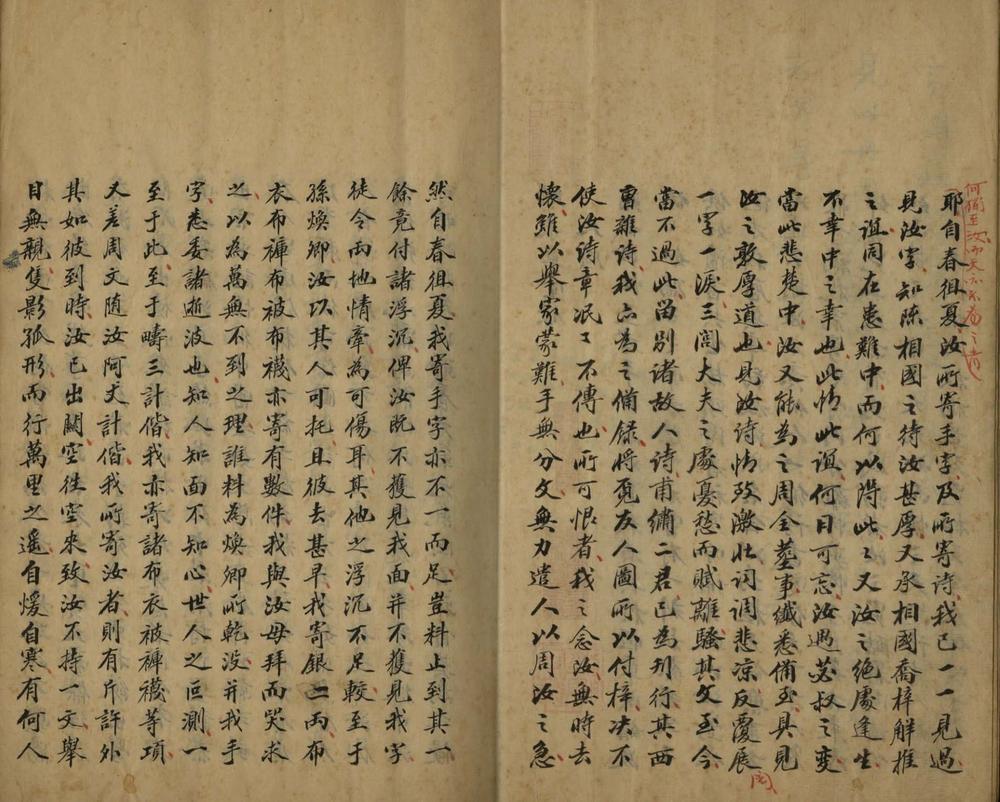 耶自春徂夏汝所寄手字及所寄詩我已一一見過
見汝字知陳相國之待汝甚厚又承相國喬梓解推
之誼同在患難中而何以得此此又汝之絕處逢生
不幸中之幸也此情此誼何日可忘汝遇苾叔之變
當此悲楚中汝又能為之周全塟事纖悉備至具見
汝之敦厚道也見汝詩情致激壯詞調悲凉反覆展
一字一淚三閭大夫之處憂愁而賦離騷其文至今
當不過此留別諸故人詩甫繡二君已為刊行其西
曹雜詩我亦為之備錄將覔友人圖所以付梓决不
使汝詩章泯泯不傳也所可恨者我之念汝無時去
懷雖以舉家蒙難手無分文無力遣人以周汝之急
然自春徂夏我寄手字亦不一而足豈料止到其一
餘竟付諸浮沉俾汝既不獲見我面并不獲見我字
徒令兩地情牽為可傷耳其他之浮沉不足較至于
孫煥卿汝以其人可托且彼去甚早我寄銀二兩布
衣布褲布被布襪亦寄有數件我與汝母拜而哭求
之以為萬無不到之理誰料為煥卿所乾没并我手
字悉委諸逝波也知人知面不知心世人之叵測一
至于此至于疇三計偕我亦寄諸布衣被褲襪等項
又差周文随汝阿丈計偕我所寄汝者則有斤許外
其如彼到時汝已出關空往空來致汝不持一文舉
目無親隻影孤形而行萬里之遥自煖自寒有何人